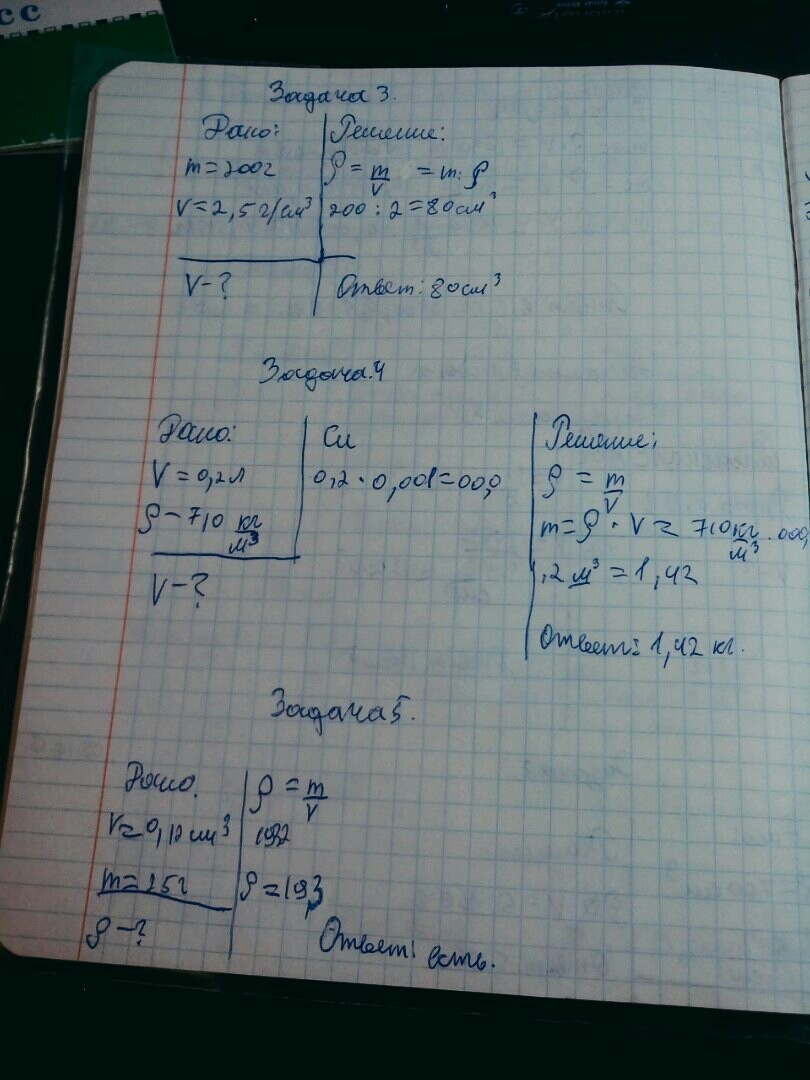 сс
Задача 3.
Дано:
m=200г
V=2,5г/см³
V-?
Решение:
ρ = m/V = m:ρ
200:2=80см³
Ответ: 80см³
Задача.4
Дано:
V=0,2л
ρ-710 кг/м³
V-?
Си
0,2·0,001=00,0
Решение;
ρ = m/V
m=ρ·V= 710кг/м³·000,
,2м³=1,42
Ответ: 1,42 кг.
Задача5.
Дано.
V=0,10см³
m=25г
ρ-?
ρ = m/V
ρ=19,3
Ответ: есть.